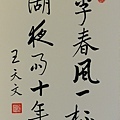 李春風一杯
湖夜雨十年
王天文